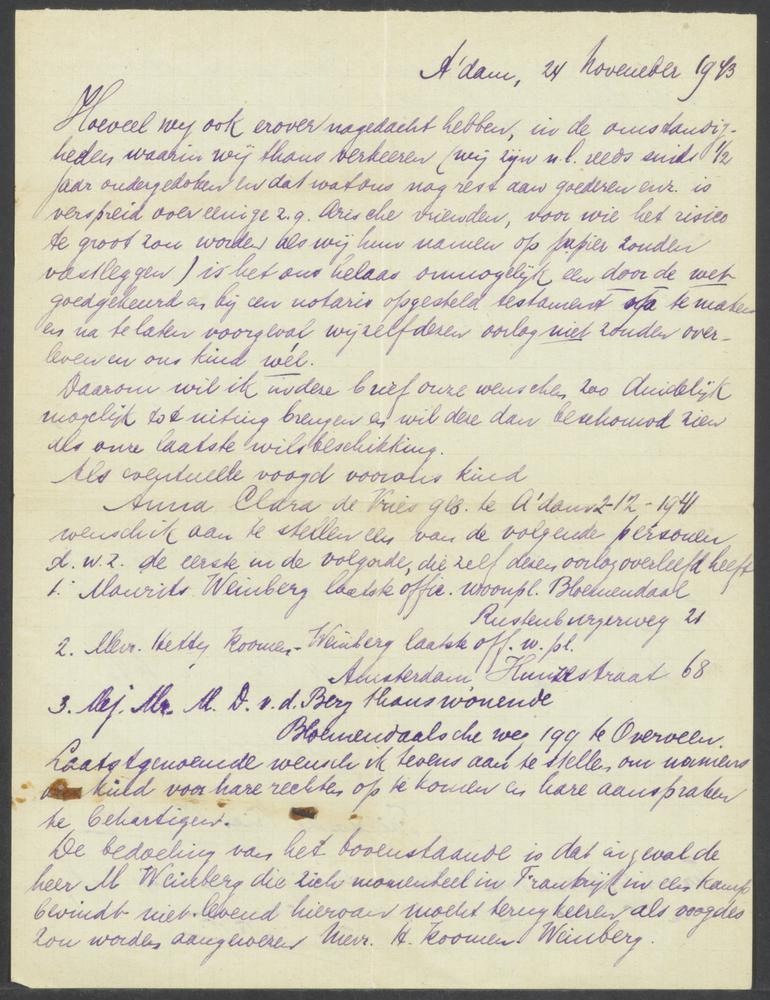 A'dam, 24 November 1943
Hoeveel wy ook erover nagedacht hebben, in de omstandig-
heden waarin wij thans verkeeren (wij zijn n.l. reeds sinds 1/2
jaar ondergedoken en dat wat ons nog rest aan goederen enz. is
verspreid over eenige z.g. Arische vrienden, voor wie het risico
te groot zou worden als wij hun namen op papier zouden
vastleggen) is het ons helaas onmogelijk een door de wet
goedgekeurd en bij een notaris opgesteld testament te maken
en na te laten voorgeval wijzelf dezen oorlog niet zouden over-
leven en ons kind wel.
Daarom wil ik in deze brief onze wenschen zoo duidelijk
mogelijk tot uiting brengen en wil deze dan beschouwd zien
als onze laatste wilsbeschikking.
Als eventuelle voogd voor ons kind
Anna Clara de Vries geb. te A'dam 2-12-1941
wensch ik aan te stellen een van de volgende personen
d.w.z. de eerste in de volgorde, die zelf dezen oorlog overleefd heeft
1. Maurits Weinberg laatste offic. woonpl. Bloemendaal
Rustenburgerweg 21
2. Mevr. Hetty Koomen-Weinberg laatste off. w.pl.
Amsterdam Hunzestraat 68
3. Mej. Mr. M. D. v.d. Berg thans wonende
Bloemendaalsche weg 199 te Overveen.
Laatstgenoemde wensch ik tevens aan te stellen om namens
kind voor hare rechten op te komen en hare aanspraken
te behartigen.
De bedoeling van het bovenstaande is dat ingeval de
heer M Weinberg die zich momenteel in Frankrijk in een kamp
bevindt niet levend hiervan mocht terugkeeren, als voogdes
zou worden aangewezen Mevr. H. Koomen Weinberg.